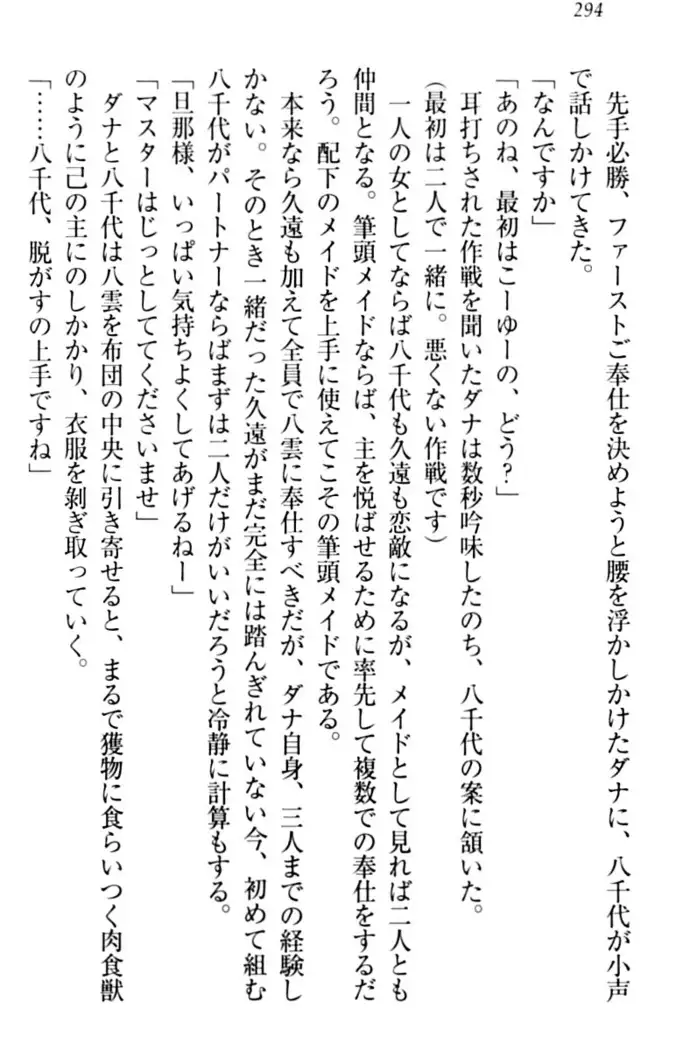 294
先手必勝、ファーストご奉仕を決めようと腰を浮かしかけたダナに、八千代が小声
で話しかけてきた。
「なんですか」
「あのね、最初はこーゆーの、どう?」
耳打ちされた作戦を聞いたダナは数秒吟味したのち、八千代の案に頷いた。
(最初は二人で一緒に。悪くない作戦です)
一人の女としてならば八千代も久遠も恋敵になるが、メイドとして見れば二人とも
仲間となる。筆頭メイドならば、主を悦ばせるために率先して複数での奉仕をするだ
ろう。配下のメイドを上手に使えてこその筆頭メイドである。
本来なら久遠も加えて全員で八雲に奉仕すべきだが、ダナ自身、三人までの経験し
かない。そのとき一緒だった久遠がまだ完全には踏んぎれていない今、初めて組む
八千代がパートナーならばまずは二人だけがいいだろうと冷静に計算もする。
「旦那様、いっぱい気持ちよくしてあげるねー」
「マスターはじっとしててくださいませ」
ダナと八千代は八雲を布団の中央に引き寄せると、まるで獲物に食らいつく肉食獣
のように己の主にのしかかり、衣服を剝ぎ取っていく。
「……八千代、脱がすの上手ですね」